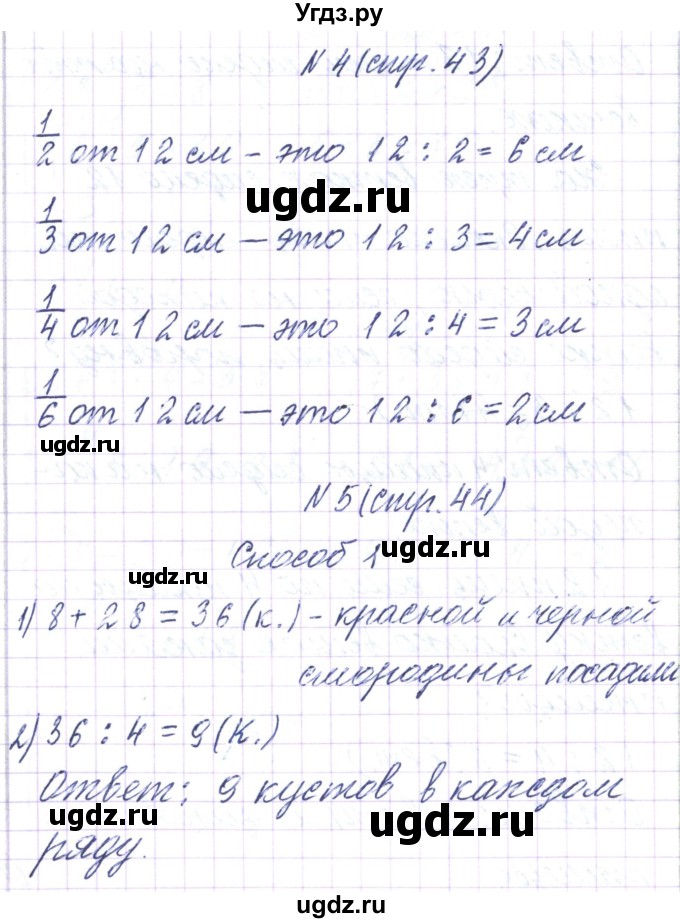 Угдз.ру
N 4 (стр. 43)
1/2 от 12 см – это 12 : 2 = 6 см
ugdz.ru
1/3 от 12 см – это 12 : 3 = 4 см
1/4 от 12 см – это 12 : 4 = 3 см
ugdz.ru
1/6 от 12 см – это 12 : 6 = 2 см
ugdz.ru
N 5 (стр. 44)
Способ 1
ugdz.ru
ugdz.ru
1) 8 + 28 = 36 (к.) – красной и чёрной
смородины посадили
ugdz.ru
2) 36 : 4 = 9 (к.)
Ответ: 9 кустов в каждом
ugdz.ru
ряду.
ugdz.ru